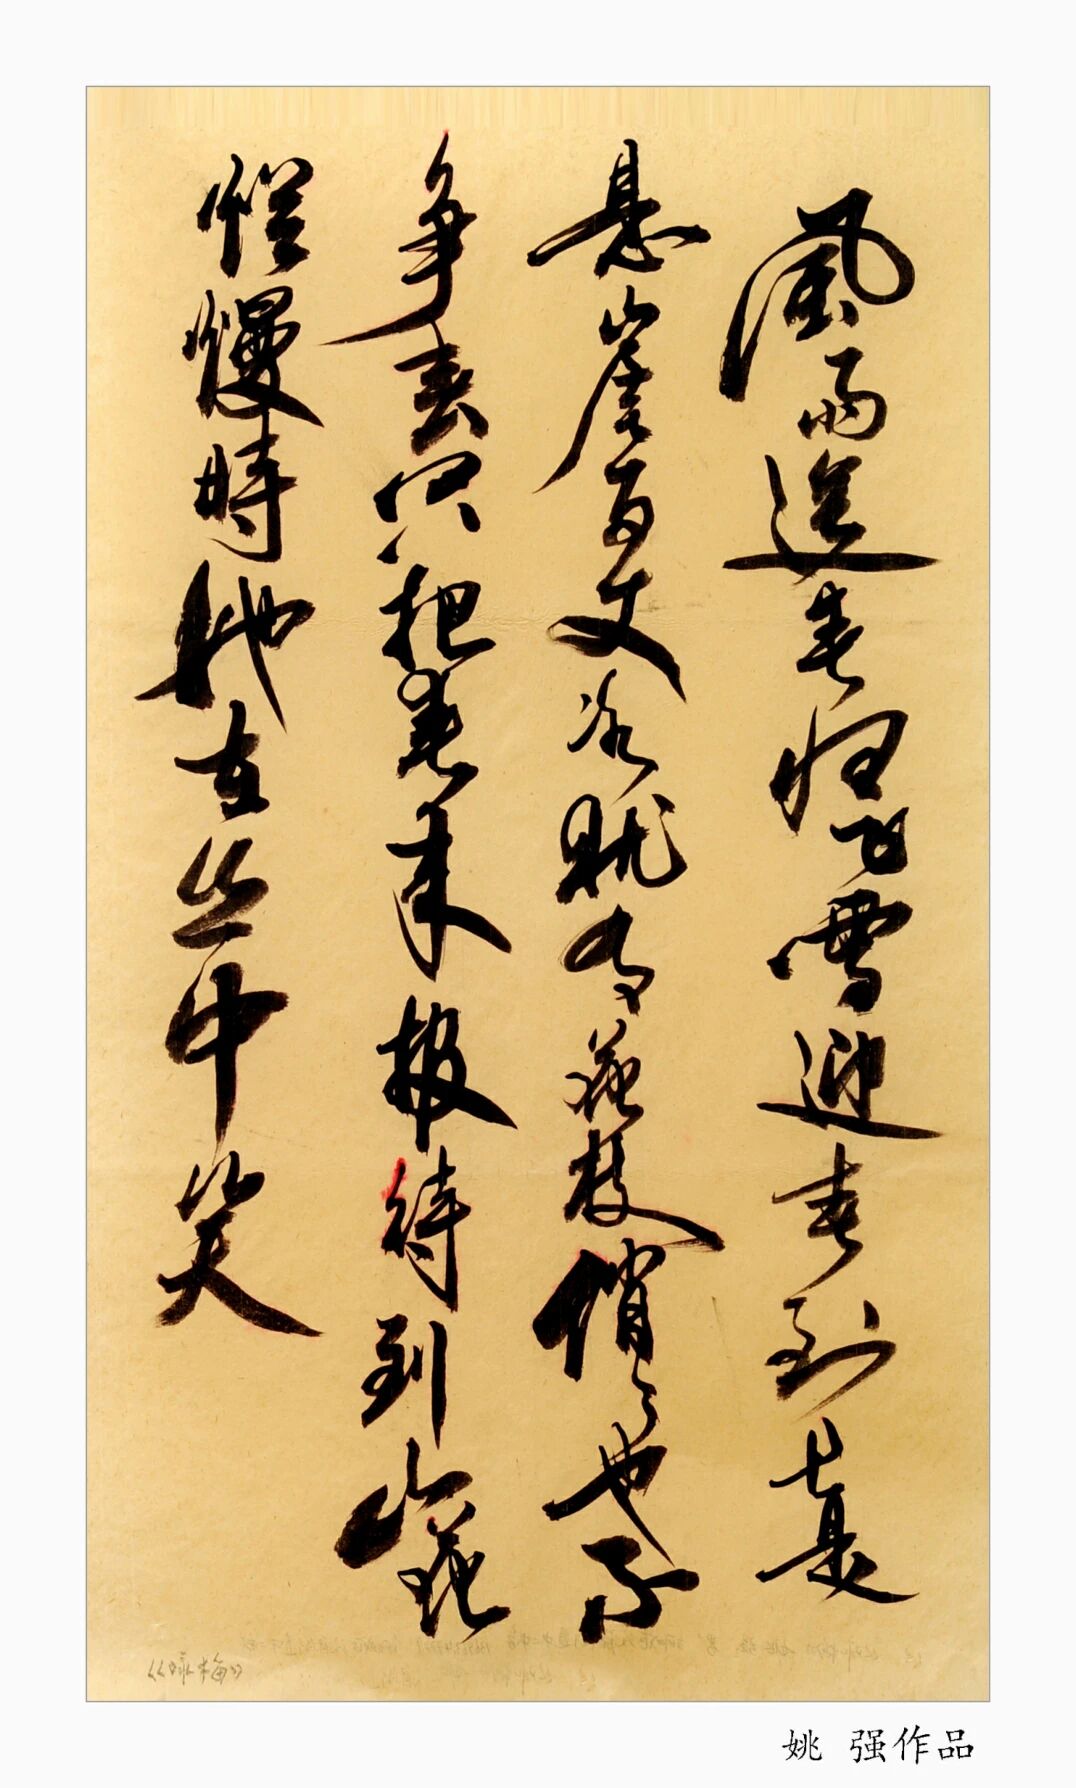 風雨送春归飞雪迎春到已是
悬崖百丈冰犹有花枝俏々也不
争春只把春来报待到山花
烂熳時她在丛中笑
《咏梅》
姚 强作品